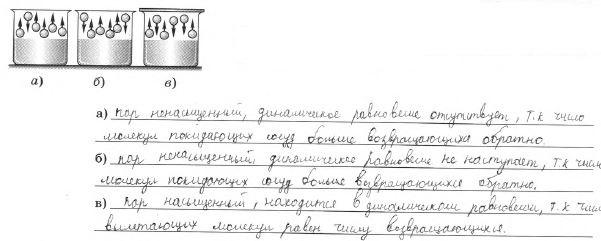 а) б) в)
а) пар ненасыщенный, динамическое равновесие отсутствует, т.к число
молекул покидающих сосуд больше возвращающихся обратно.
б) пар ненасыщенный динамическое равновесие не наступает, т.к числ
молекул покидающих сосуд больше возвращающихся обратно.
в) пар насыщенный, находится в динамическом равновесии, т.к чис
вылетающих молекул равен числу возвращающихся.